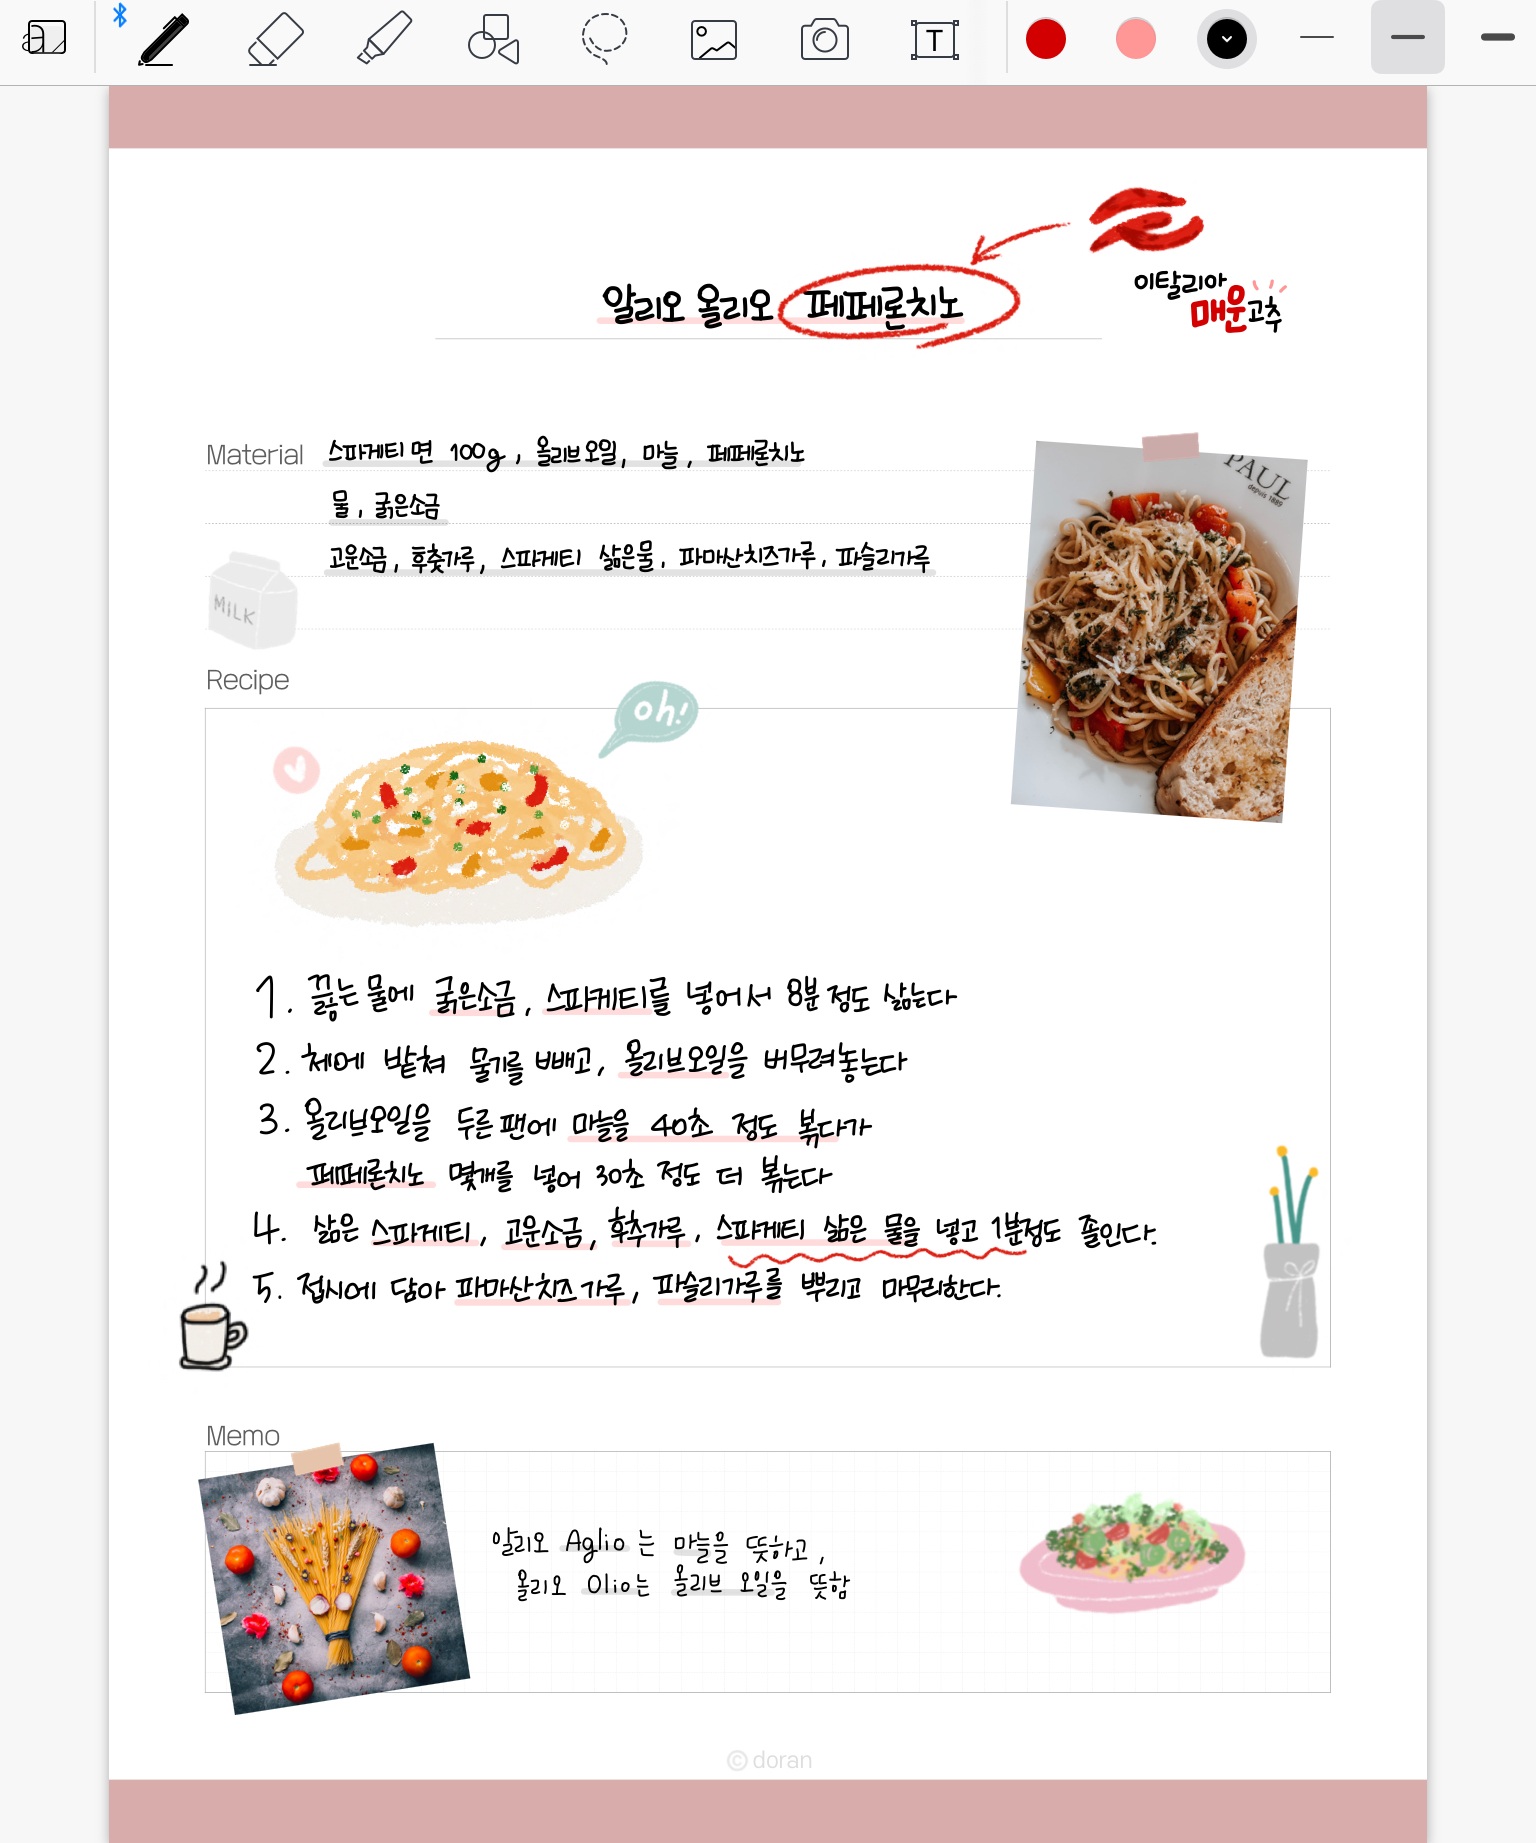 T
이탈리아
매운고추
알리오 올리오 페페론치노
Material 스파게티 면 100g, 올리브오일, 마늘, 페페론치노
물, 굵은소금
고운소금, 후춧가루, 스파게티 삶은물, 파마산치즈가루, 파슬리가루
PAUL
depuis 1889
MILK
Recipe
oh!
1. 끓는 물에 굵은소금, 스파게티를 넣어서 8분 정도 삶는다
2. 체에 밭쳐 물기를 빼고, 올리브오일을 버무려놓는다
3. 올리브오일을 두른 팬에 마늘을 40초 정도 볶다가
페페론치노 몇개를 넣어 30초 정도 더 볶는다
4. 삶은 스파게티, 고운소금, 후추가루, 스파게티 삶은 물을 넣고 1분정도 졸인다.
5. 접시에 담아 파마산치즈가루, 파슬리가루를 뿌리고 마무리한다.
Memo
알리오 Aglio 는 마늘을 뜻하고,
올리오 Olio는 올리브 오일을 뜻함
© doran